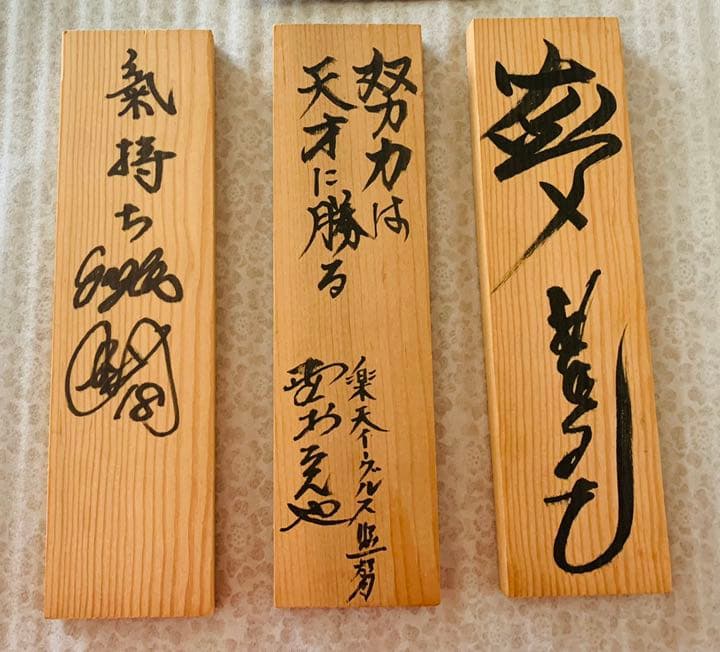 氣持ち
努力は
天才に勝る
楽天イーグルス監督
野村克也
夢